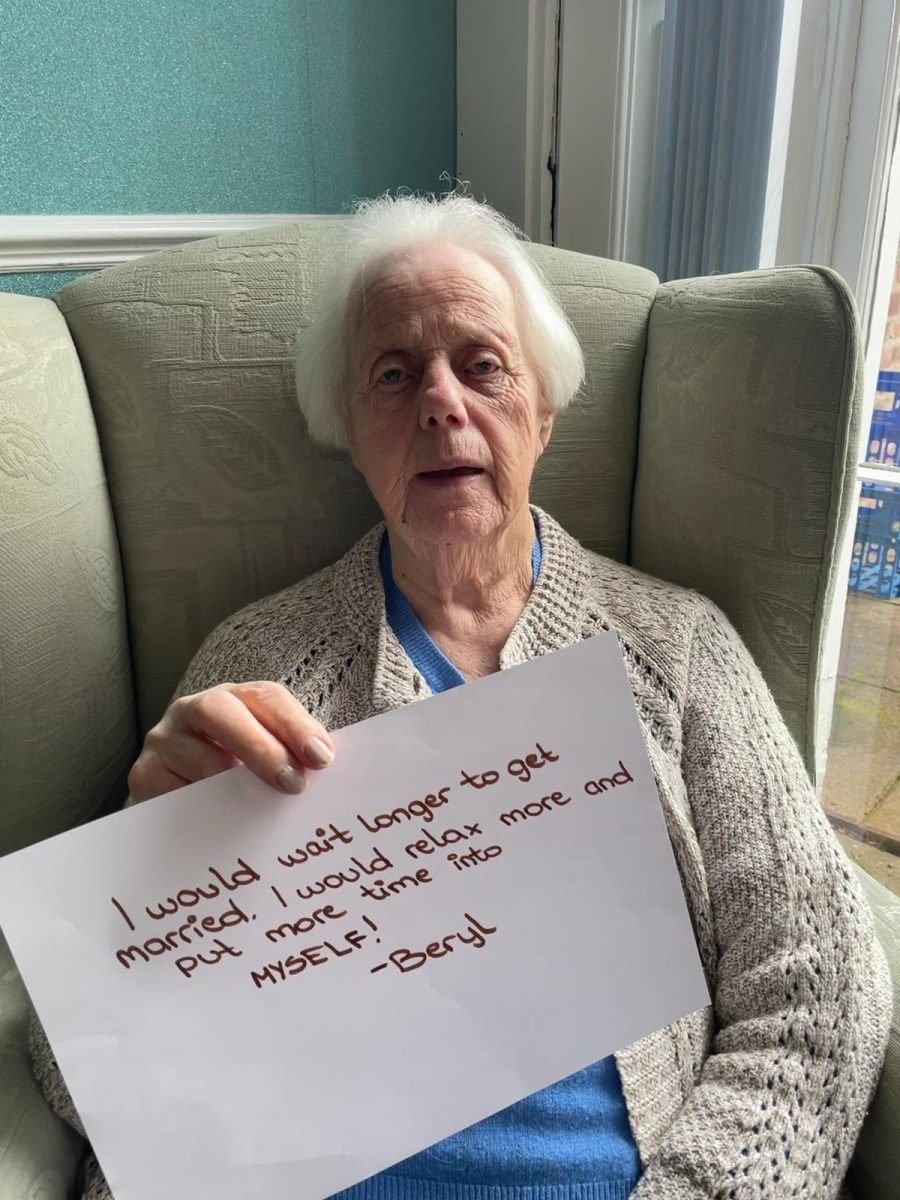 I would wait longer to get
married. I would relax more and
put more time into
MYSELF!
-Beryl